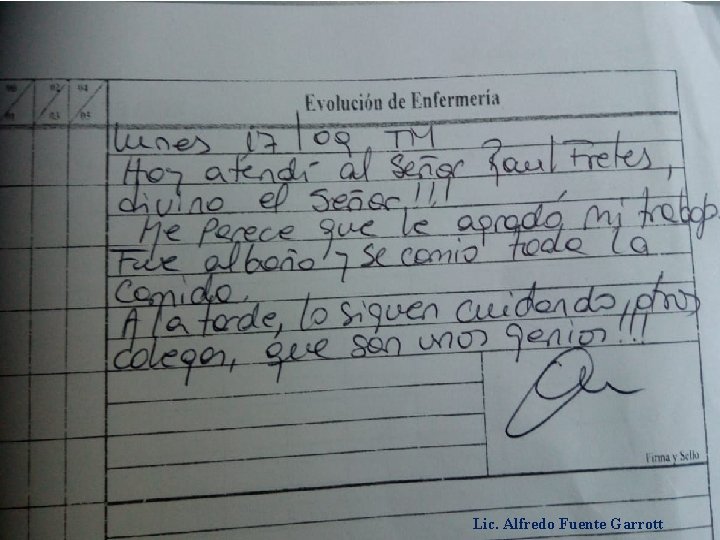 Evolución de Enfermería
lunes 17/09 TM
Hoy atendí al Señor Raul Fretes,
divino el Señor!!!
Me Parece que le agradó mi trabajo.
Fue al baño y se comio toda la
Comida.
A la tarde, lo siguen cuidando otros
colegas, que son unos genios!!!
Firma y Sello
Lic. Alfredo Fuente Garrott